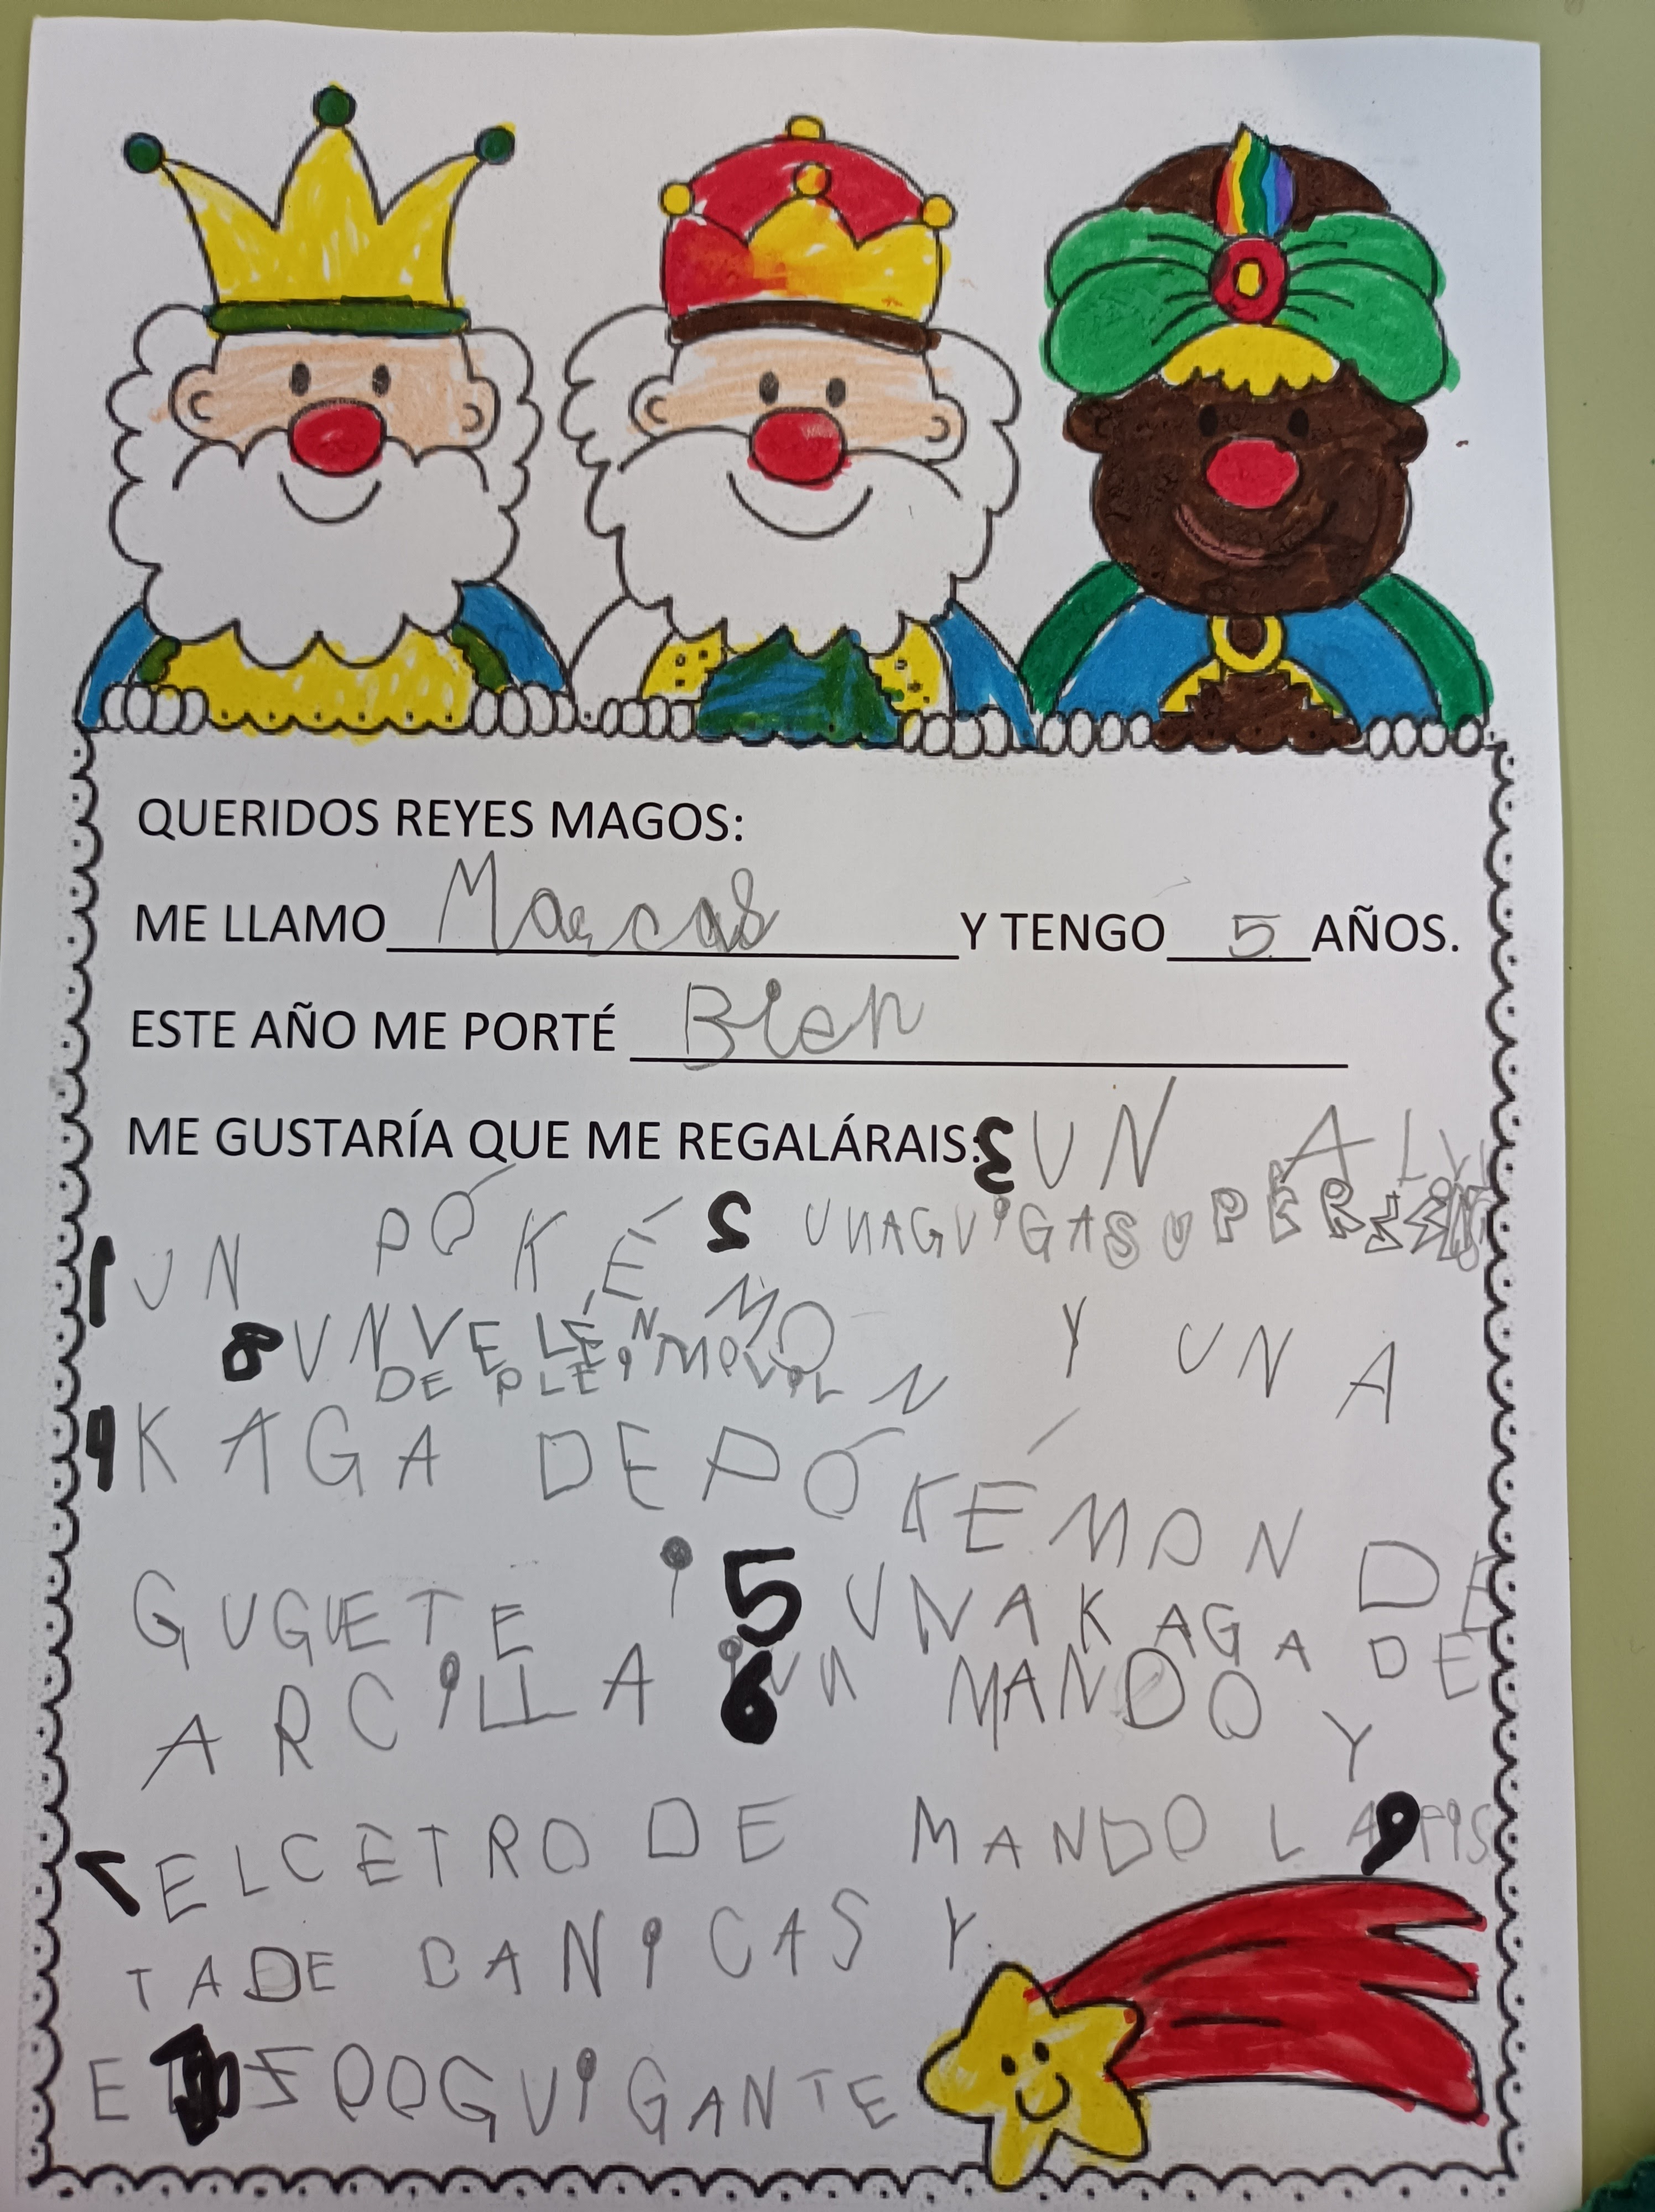 QUERIDOS REYES MAGOS:
ME LLAMO Marcos Y TENGO 5 AÑOS.
ESTE AÑO ME PORTÉ Bien
ME GUSTARÍA QUE ME REGALÁRAIS: 3 UN
1 UN PÓKÉMON 2 UNAGUIGASUPER
8 UNVELÉN Y UNA
DE PLEIMOVIL
4 KAGA DEPÓKÉMON DE
GUGUETE i 5 UNAKAGA DE
ARCILLA i 6 UN MANDO Y
7 ELCETRO DE MANDO LA 9 PIS
TADE CANICAS Y
GUIGANTE